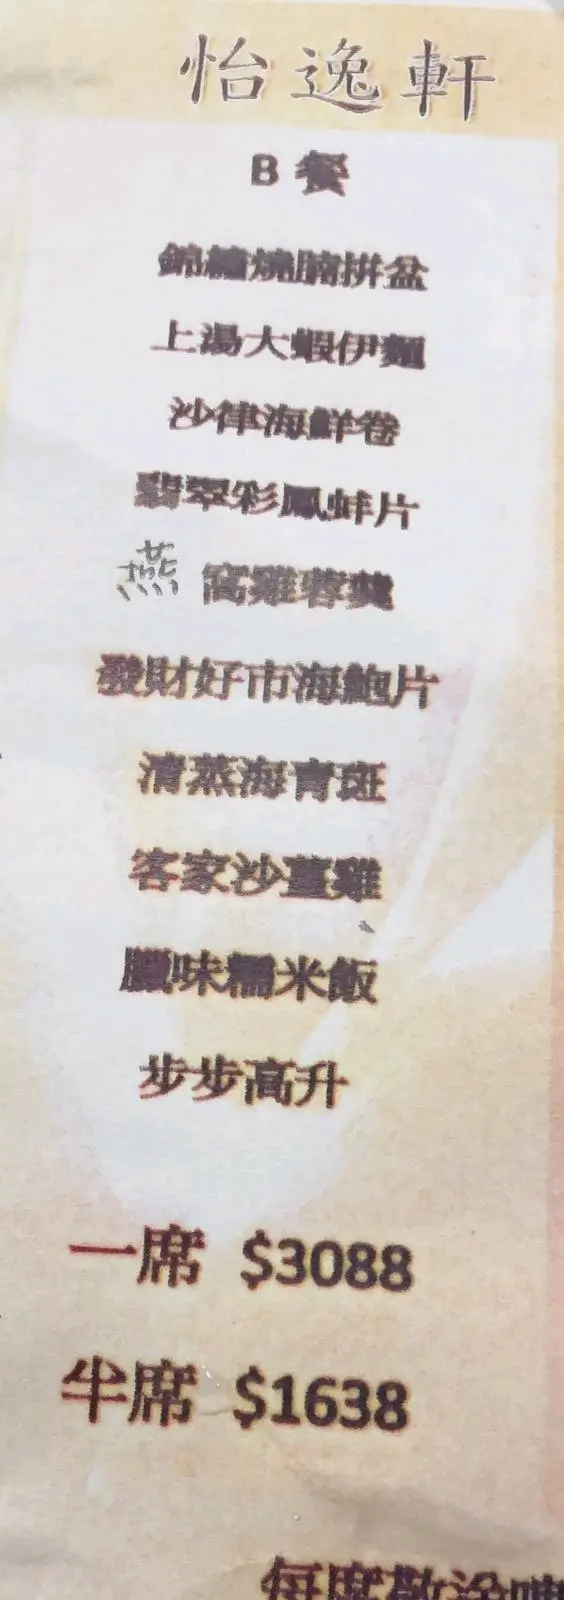 怡逸軒
B 餐
錦繡燒腩拼盆
上湯大蝦伊麵
沙律海鮮卷
翡翠彩鳳蚌片
燕窩雞蓉羹
發財好市海鮑片
清蒸海青斑
客家沙薑雞
臘味糯米飯
步步高升
一席 $3088
半席 $1638
每席敬送啤